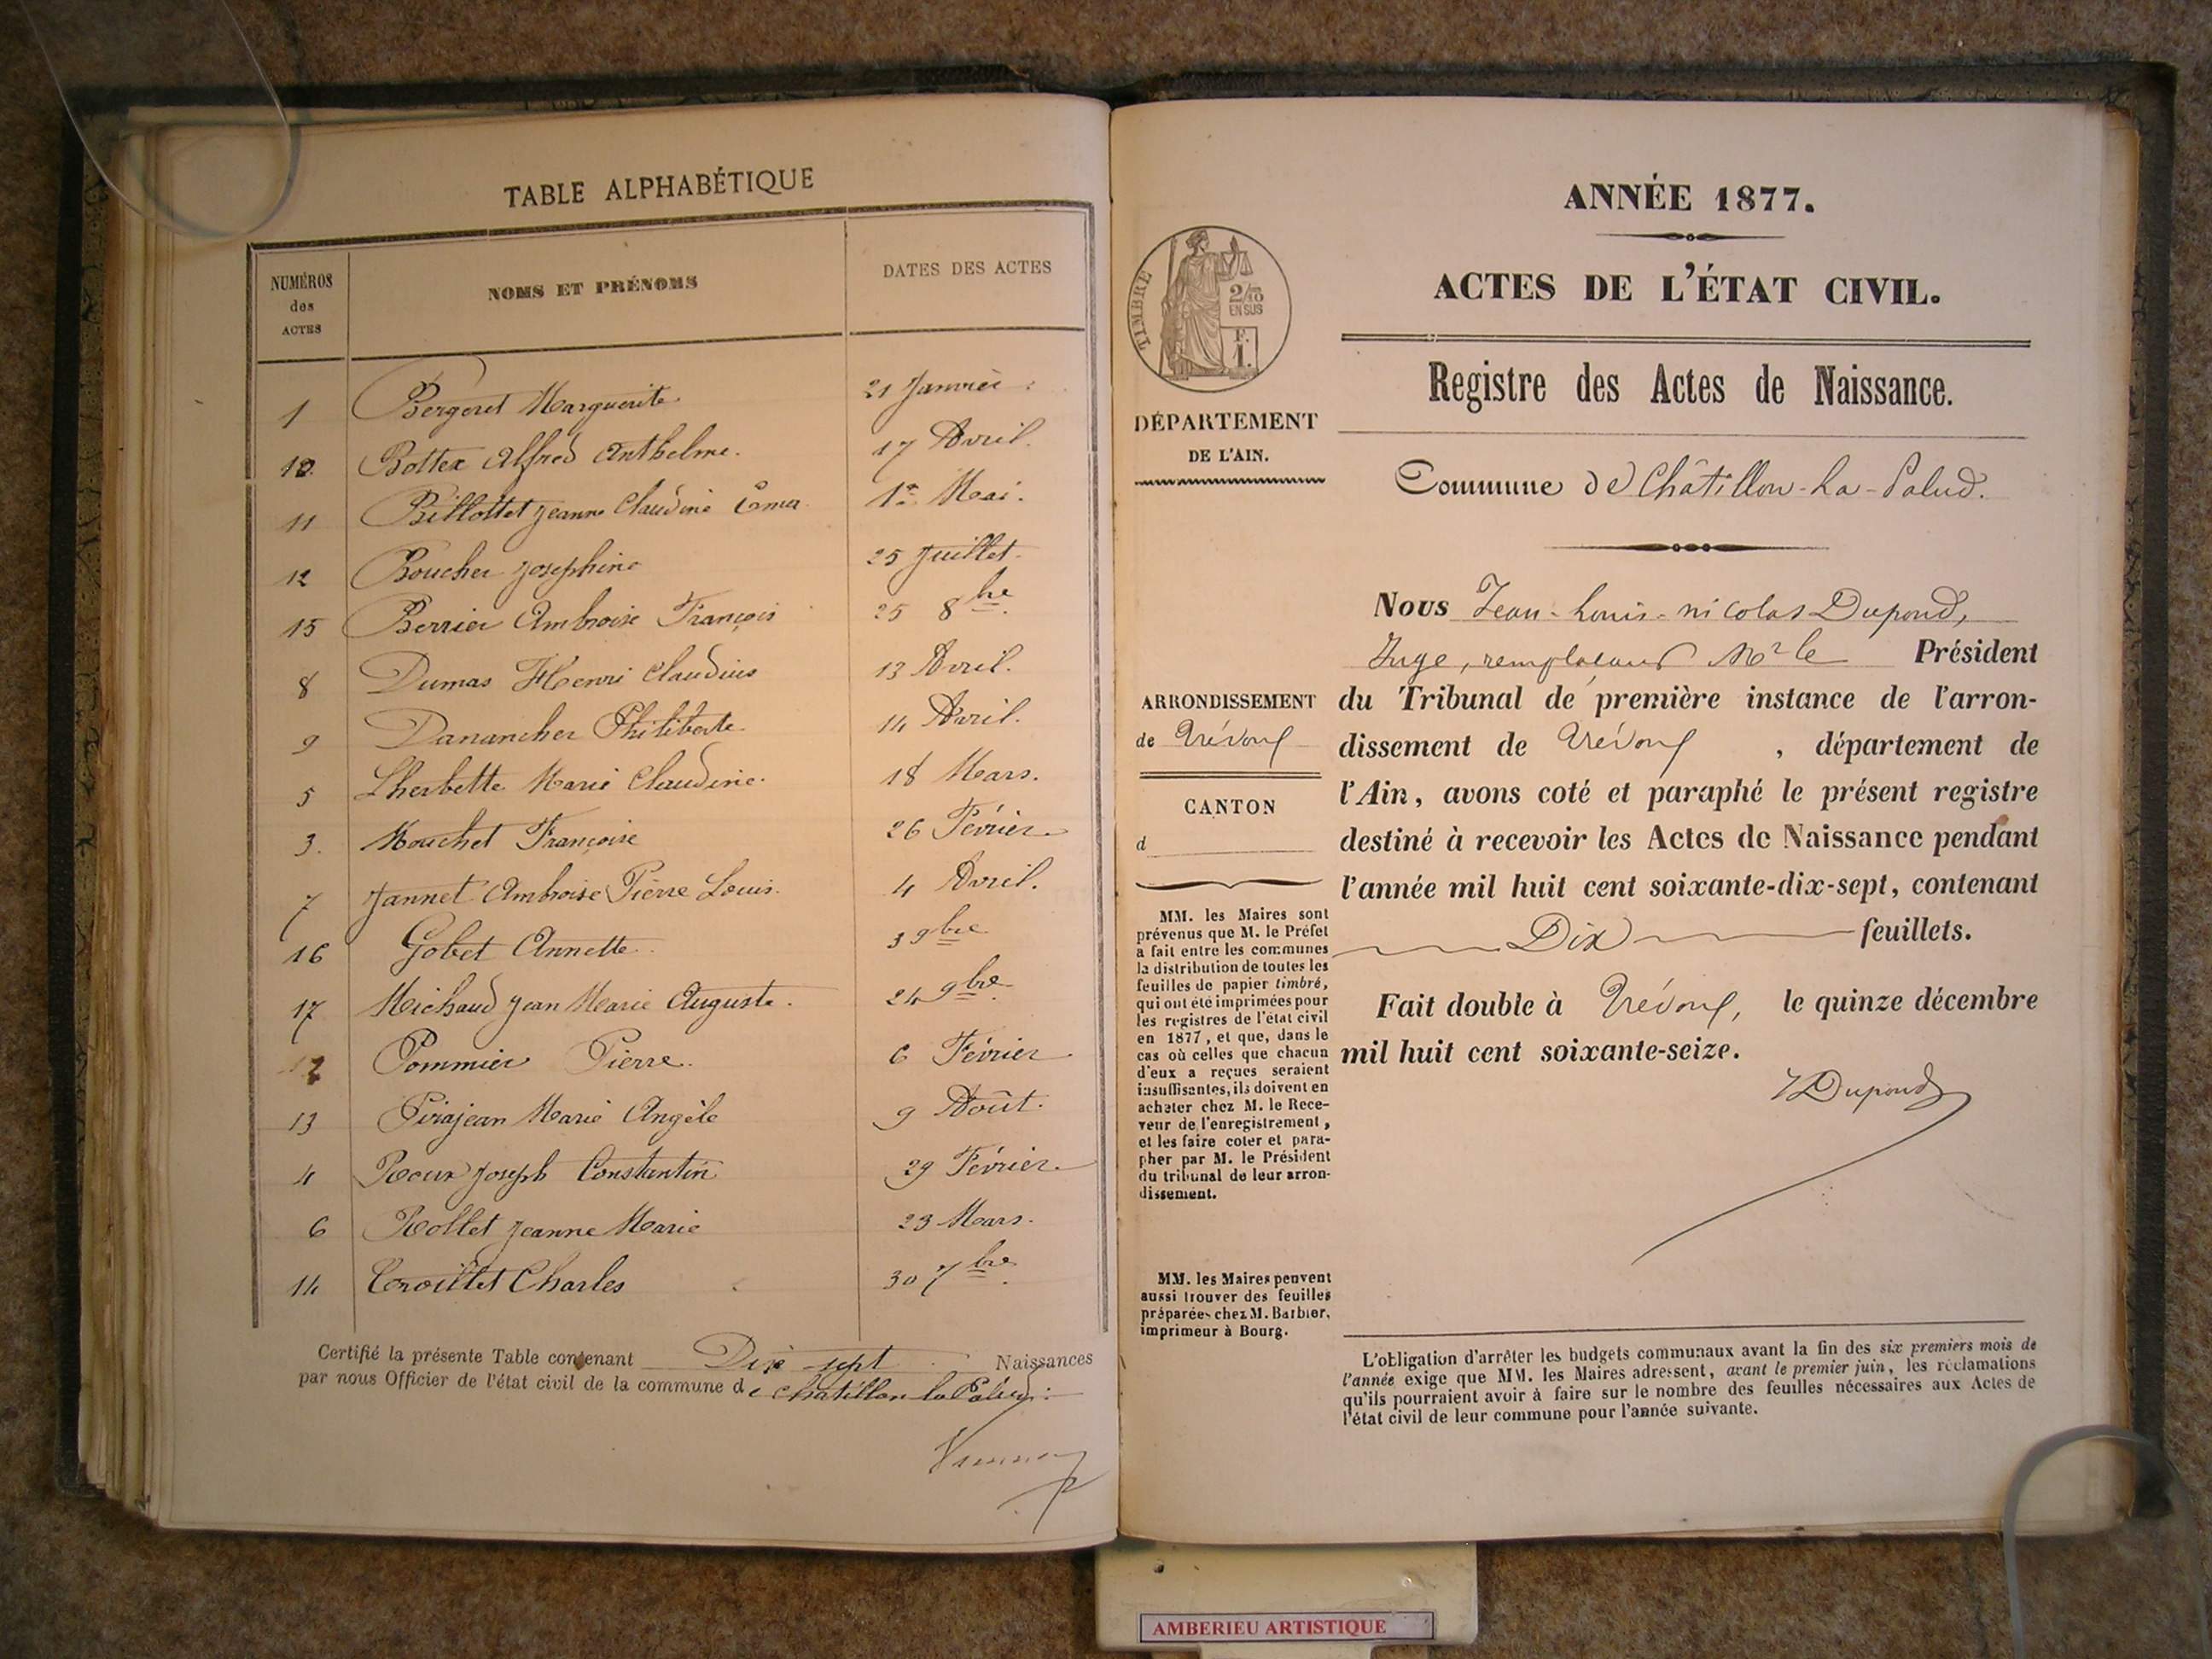 TABLE ALPHABÉTIQUE
NUMÉROS des ACTES
NOMS ET PRÉNOMS
DATES DES ACTES
1 Bergeret Marguerite 21 Janvier
10 Bottex Alfred Anthelme. 17 Avril.
11 Billottet Jeanne Claudine Ema 1er Mai.
12 Boucher Joséphine 25 Juillet.
15 Berrier Ambroise François 25 8bre
8 Dumas Henri Claudius 13 Avril.
9 Danancher Philiberte 14 Avril.
5 Lherbette Marie Claudine. 18 Mars.
3. Mouchet Françoise 26 Février
7 Jannet Ambroise Pierre Louis. 4 Avril.
16 Gobet Annette 3 9bre
17 Michaud Jean Marie Auguste. 24 9bre
Pommier Pierre. 6 Février
13 Pirajean Marie Angèle 9 Août.
4 Roux Joseph Constantin 29 Février.
6 Rollet Jeanne Marie 23 Mars.
14 Charles 30 7bre
Certifié la présente Table contenant Dix sept Naissances
par nous Officier de l'état civil de la commune de Chatillon la Palud:
ANNÉE 1877.
ACTES DE L'ÉTAT CIVIL.
Registre des Actes de Naissance.
TIMBRE
2/10
EN SUS
F.
1.
DÉPARTEMENT
DE L'AIN.
Commune de Châtillon-La-Palud.
Nous Jean-Louis-Nicolas Dupond,
Juge, remplaçant Mr le Président
du Tribunal de première instance de l'arron-
dissement de Trévoux, département de
l'Ain, avons coté et paraphé le présent registre
destiné à recevoir les Actes de Naissance pendant
l'année mil huit cent soixante-dix-sept, contenant
Dix feuillets.
Fait double à Trévoux, le quinze décembre
mil huit cent soixante-seize.
Dupond
ARRONDISSEMENT
de Trévoux
CANTON
d
MM. les Maires sont
prévenus que M. le Préfet
a fait entre les communes
la distribution de toutes les
feuilles de papier timbré,
qui ont été imprimées pour
les registres de l'état civil
en 1877, et que, dans le
cas où celles que chacun
d'eux a reçues seraient
insuffisantes, ils doivent en
acheter chez M. le Rece-
veur de l'enregistrement,
et les faire coter et para-
pher par M. le Président
du tribunal de leur arron-
dissement.
MM. les Maires peuvent
aussi trouver des feuilles
préparées chez M. Barbier,
imprimeur à Bourg.
L'obligation d'arrêter les budgets communaux avant la fin des six premiers mois de
l'année exige que MM. les Maires adressent, avant le premier juin, les réclamations
qu'ils pourraient avoir à faire sur le nombre des feuilles nécessaires aux Actes de
l'état civil de leur commune pour l'année suivante.
AMBERIEU ARTISTIQUE